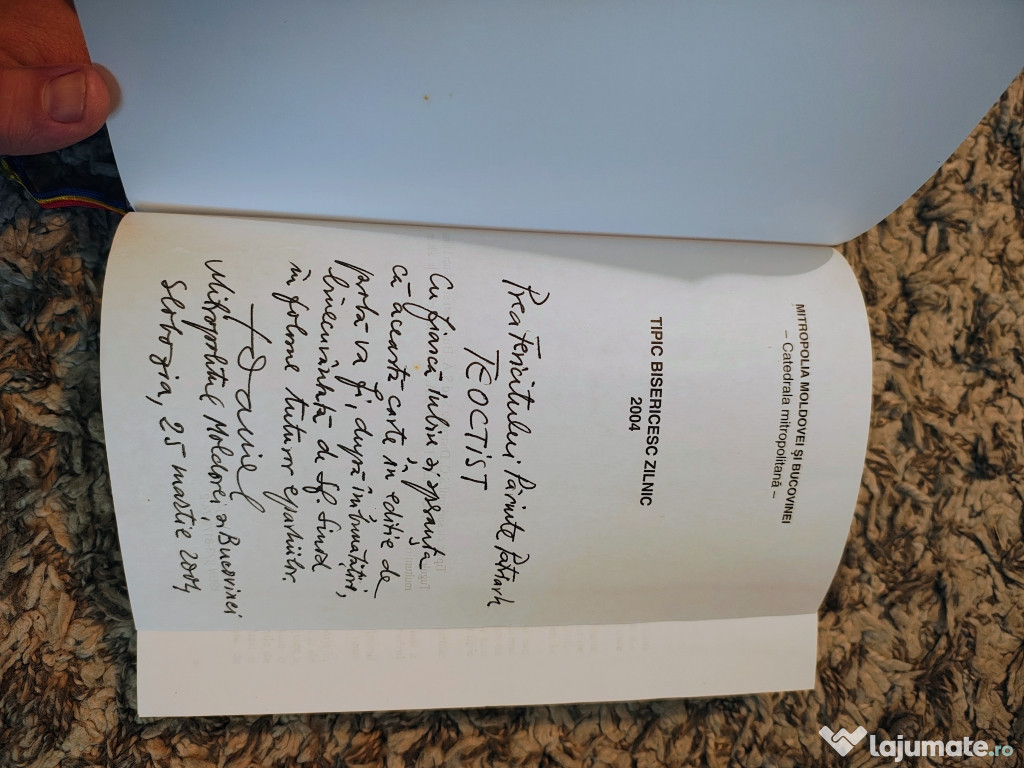 MITROPOLIA MOLDOVEI ȘI BUCOVINEI
– Catedrala mitropolitană –
TIPIC BISERICESC ZILNIC
2004
Prea Fericitului Părinte Patriarh
TEOCTIST
Cu fiască iubire și speranța
că această carte în ediție de
partă va fi, după îmbunătățiri,
binecuvântată de Sf. Sinod
în folosul tuturor eparhiilor.
† Daniel
Mitropolitul Moldovei și Bucovinei
Slobozia, 25 martie 2004
lajumate.ro